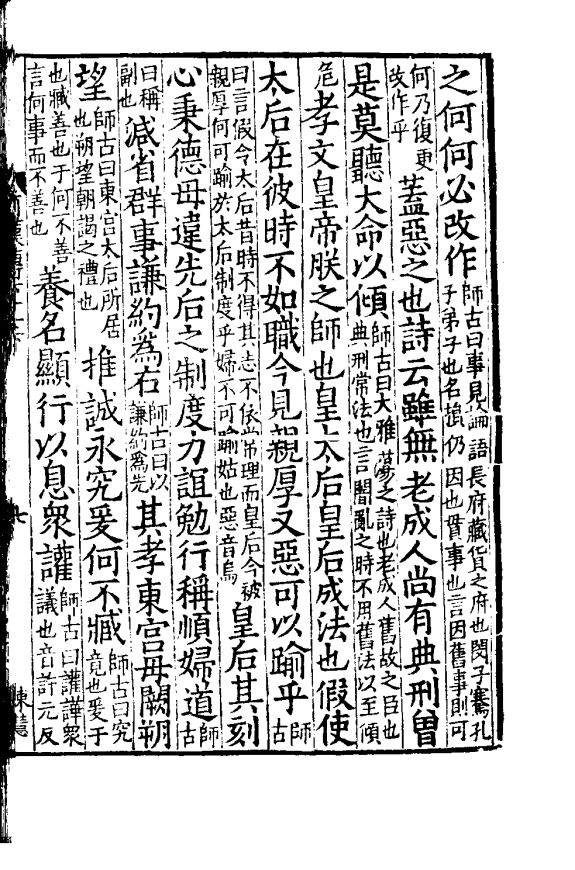 之何何必改作師古曰事見論語長府藏貨之府也閔子騫孔子弟子也名損仍因也貫事也言因舊事則可
何乃復更改作乎蓋惡之也詩云雖無老成人尚有典刑曾
是莫聽大命以傾師古曰大雅蕩之詩也老成人舊故之臣也典刑常法也言闇亂之時不用舊法以至傾
危孝文皇帝朕之師也皇太后皇后成法也假使
太后在彼時不如職今見親厚又惡可以踰乎師古
曰言假令太后昔時不得其志不依常理而皇后今被親厚何可踰於太后制度乎婦不可踰姑也惡音烏皇后其刻
心秉德毋違先后之制度力誼勉行稱順婦道師古
曰稱副也減省群事謙約為右師古曰以謙約為先其孝東宮毋闕朔
望師古曰東宮太后所居也朔望朝謁之禮也推誠永究爰何不臧師古曰究竟也爰于
也臧善也于何不善言何事而不善也養名顯行以息眾讙師古曰讙譁眾議也音許元反
七